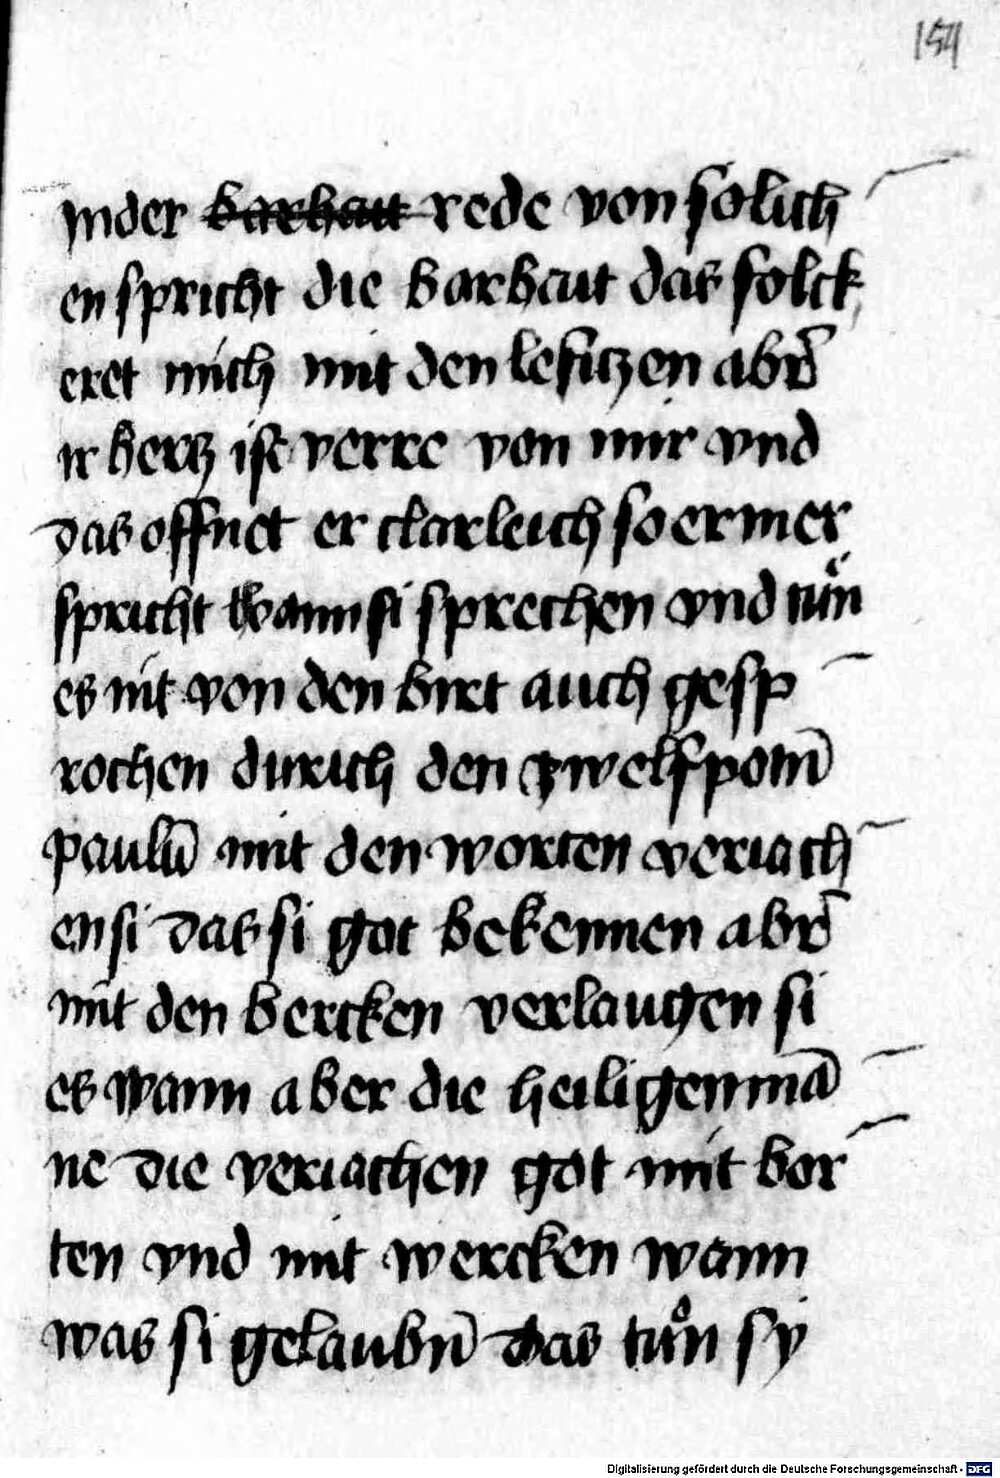 154
inder barhait rede von solich
en spricht die barhait das folck
eret mich mit den lefftzen abr̄
ir hertz ist verre von mir vnd
das offnet er clarleich so er mer
spricht wann si sprechen vnd tuͦn
es nit von den birt auch gesp
rochen durich den zwelfpotn̄
paulū mit den worten veriach
en si das si got bekennen abr̄
mit den bercken verlaugen si
es wann aber die heiligen mā
ne die veriachen got mit bor
ten vnd mit wercken wann
was si gelaubn̄ das tuͦn sy
Digitalisierung gefördert durch die Deutsche Forschungsgemeinschaft - DFG